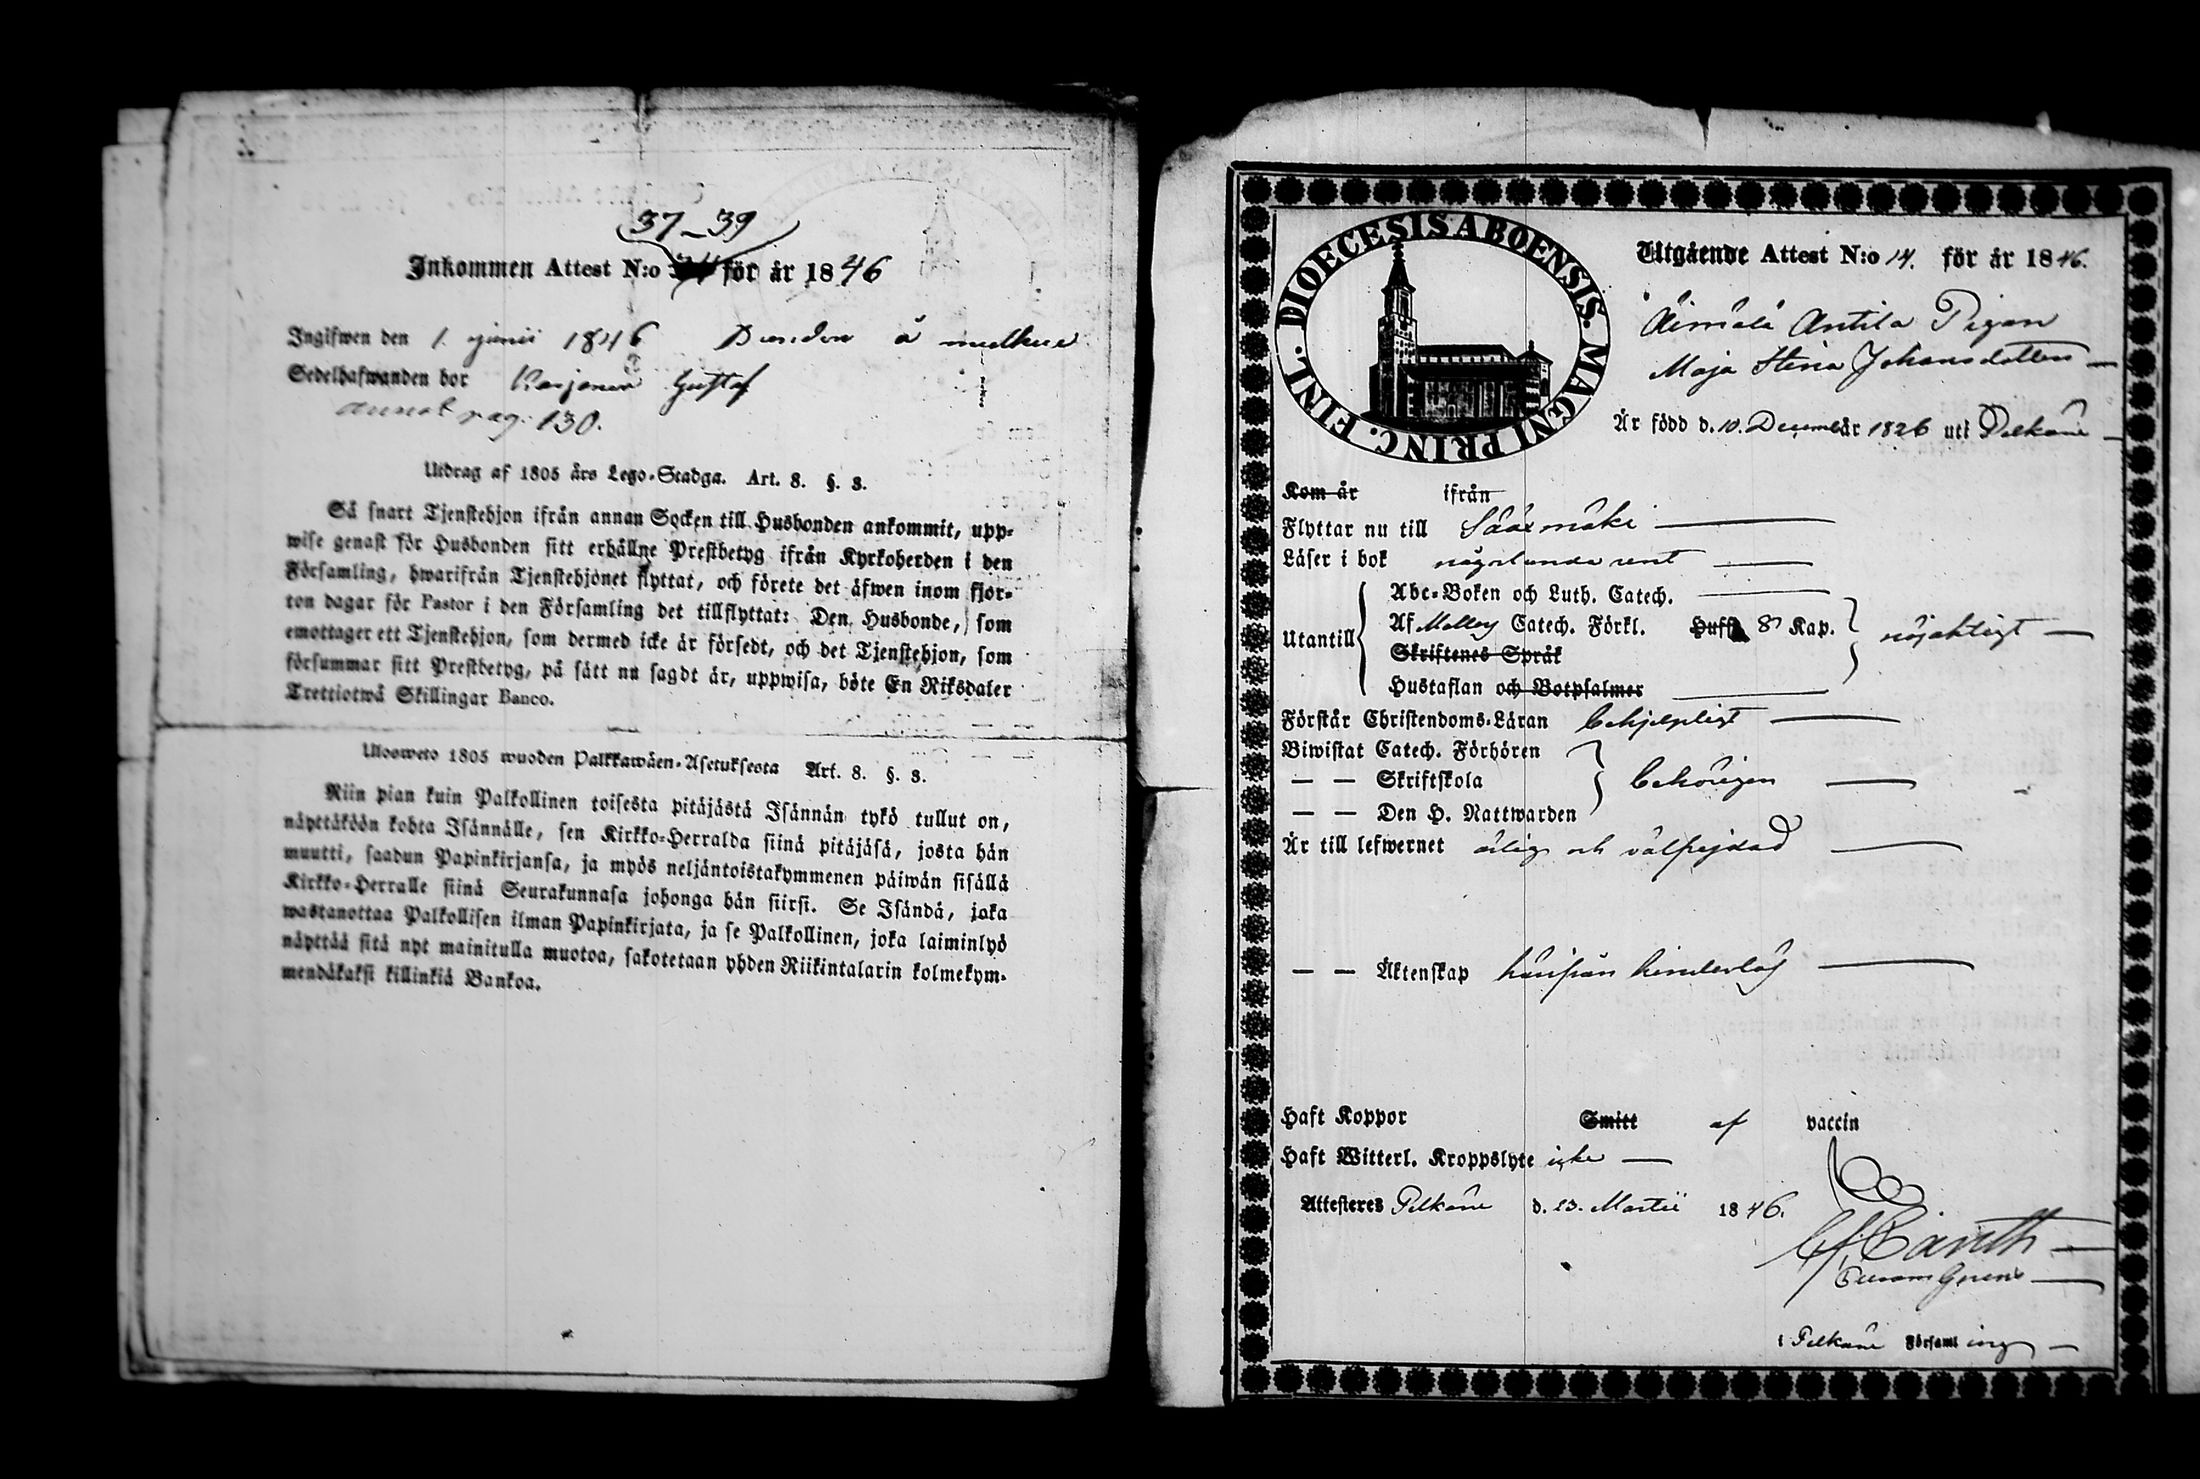 37–39
Inkommen Attest N:o för år 1846
Ingifwen den 1 junii 1846
Sedelhafwanden bor Gustaf
pag. 130.
Utdrag af 1805 års Lego-Stadga. Art. 8. §. 8.
Så snart Tjenstehjon ifrån annan Socken till Husbonden ankommit, upp-
wise genast för Husbonden sitt erhållne Prestbetyg ifrån Kyrkoherden i den
Församling, hwarifrån Tjenstehjonet flyttat, och förete det äfwen inom fjor-
ton dagar för Pastor i den Församling det tillflyttat: Den Husbonde, som
emottager ett Tjenstehjon, som dermed icke är försedt, och det Tjenstehjon, som
försummar sitt Prestbetyg, på sätt nu sagdt är, uppwisa, böte En Riksdaler
Trettiotwå Skillingar Banco.
Ulosweto 1805 wuoden Palkkawäen-Asetuksesta Art. 8. §. 8.
Niin pian kuin Palkollinen toisesta pitäjästä Isännän tykö tullut on,
näyttäköön kohta Isännälle, sen Kirkko-Herralda siinä pitäjäsä, josta hän
muutti, saadun Papinkirjansa, ja myös neljäntoistakymmenen päiwän sisällä
Kirkko-Herralle siinä Seurakunnasa johonga hän siirsi. Se Isändä, joka
wastanottaa Palkollisen ilman Papinkirjata, ja se Palkollinen, joka laiminlyö
näyttää sitä nyt mainitulla muotoa, sakotetaan yhden Riikintalarin kolmekym-
mendäkaksi killinkiä Bankoa.
DIOECESIS ABOENSIS. MAGNI PRINC. FINL.
Utgående Attest N:o 14. för år 1846.
Äimälä Antila Pigan
Maja Stina Johansdotter
Är född d. 10. Decemb år 1826 uti Pelkäne
Kom år ifrån
Flyttar nu till Sääxmäki
Läser i bok någorlunda rent
Abc-Boken och Luth. Catech.
Utantill Af Catech. Förkl. 8 Kap. nöjaktigt
Skriftenes Språk
Hustaflan och Botpsalmer
Förstår Christendoms-Läran behjelpligt
Biwistat Catech. Förhören
— — Skriftskola behörigen
— — Den H. Nattwarden
Är till lefwernet ärlig och välfrejdad
— — Äktenskap härifrån hinderlös
Haft Koppor Smitt af vaccin
Haft Witterl. Kroppslyte icke
Attesteres Pelkäne d. 23. Martii 1846.
i Pelkäne Församling